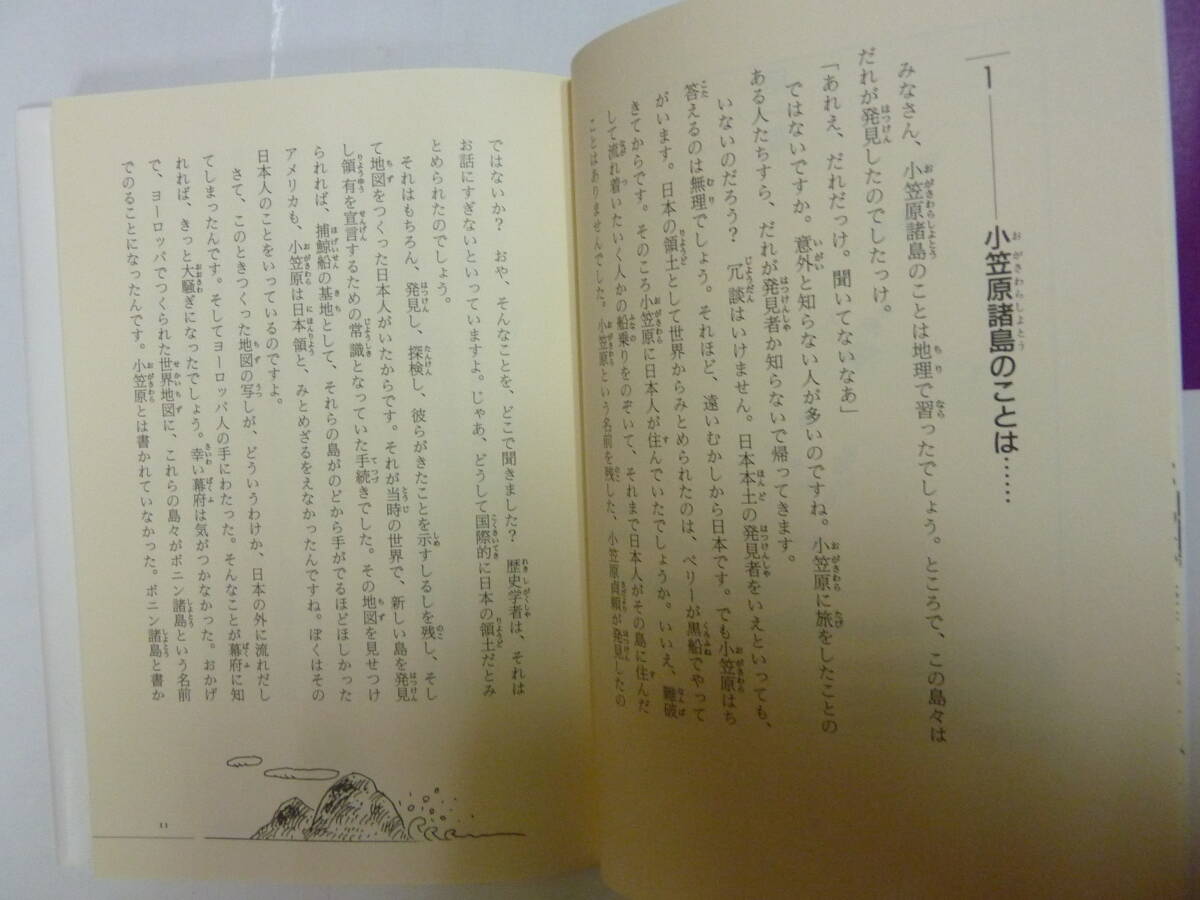 1――小笠原諸島のことは……
みなさん、小笠原諸島のことは地理で習ったでしょう。ところで、この島々は
だれが発見したのでしたっけ。
「あれえ、だれだっけ。聞いてないなあ」
ではないですか。意外と知らない人が多いのですね。小笠原に旅をしたことの
ある人たちすら、だれが発見者か知らないで帰ってきます。
いないのだろう？　冗談はいけません。日本本土の発見者をいえといっても、
答えるのは無理でしょう。それほど、遠いむかしから日本です。でも小笠原はち
がいます。日本の領土として世界からみとめられたのは、ペリーが黒船でやって
きてからです。そのころ小笠原に日本人が住んでいたでしょうか。いいえ、難破
して流れ着いたいく人かの船乗りをのぞいて、それまで日本人がその島に住んだ
ことはありませんでした。小笠原という名前を残した、小笠原貞頼が発見したの
ではないか？　おや、そんなことを、どこで聞きました？　歴史学者は、それは
お話にすぎないといっていますよ。じゃあ、どうして国際的に日本の領土だとみ
とめられたのでしょう。
それはもちろん、発見し、探検し、彼らがきたことを示すしるしを残し、そし
て地図をつくった日本人がいたからです。それが当時の世界で、新しい島を発見
し領有を宣言するための常識となっていた手続きでした。その地図を見せつけ
られれば、捕鯨船の基地として、それらの島がのどから手がでるほどほしかった
アメリカも、小笠原は日本領と、みとめざるをえなかったんですね。ぼくはその
日本人のことをいっているのですよ。
さて、このときつくった地図の写しが、どういうわけか、日本の外に流れだし
てしまったんです。そしてヨーロッパ人の手にわたった。そんなことが幕府に知
れれば、きっと大騒ぎになったでしょう。幸い幕府は気がつかなかった。おかげ
で、ヨーロッパでつくられた世界地図に、これらの島々がボニン諸島という名前
でのることになったんです。小笠原とは書かれていなかった。ボニン諸島と書か
11